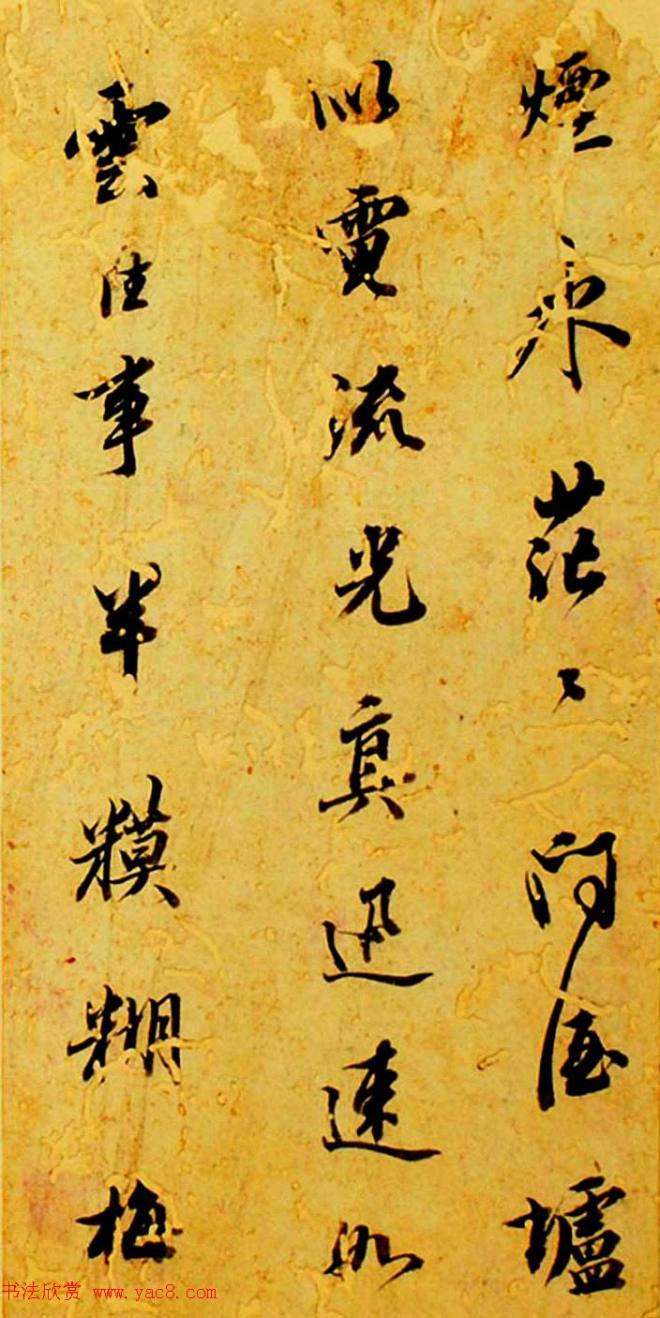 煙永茫々问酒壚
似電流光真迅速如
雲往事半糢糊梅
书法欣赏 www.yac8.com